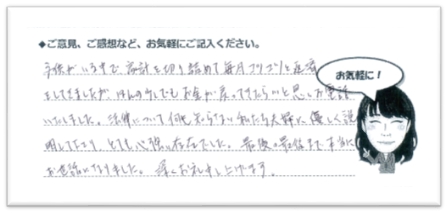 ◆ご意見、ご感想など、お気軽にご記入ください。
子供がいる中で家計を切り詰めて毎月コツコツと返済
をしてきましたが、ほんの少しでもお金が戻ってきたらいいと思いお電話
いたしました。法律について何も知らない私たち夫婦に優しく説
明して下さり、とても心強い存在でした。最後の最後まで本当に
お世話になりました。厚くお礼申し上げます。
お気軽に!